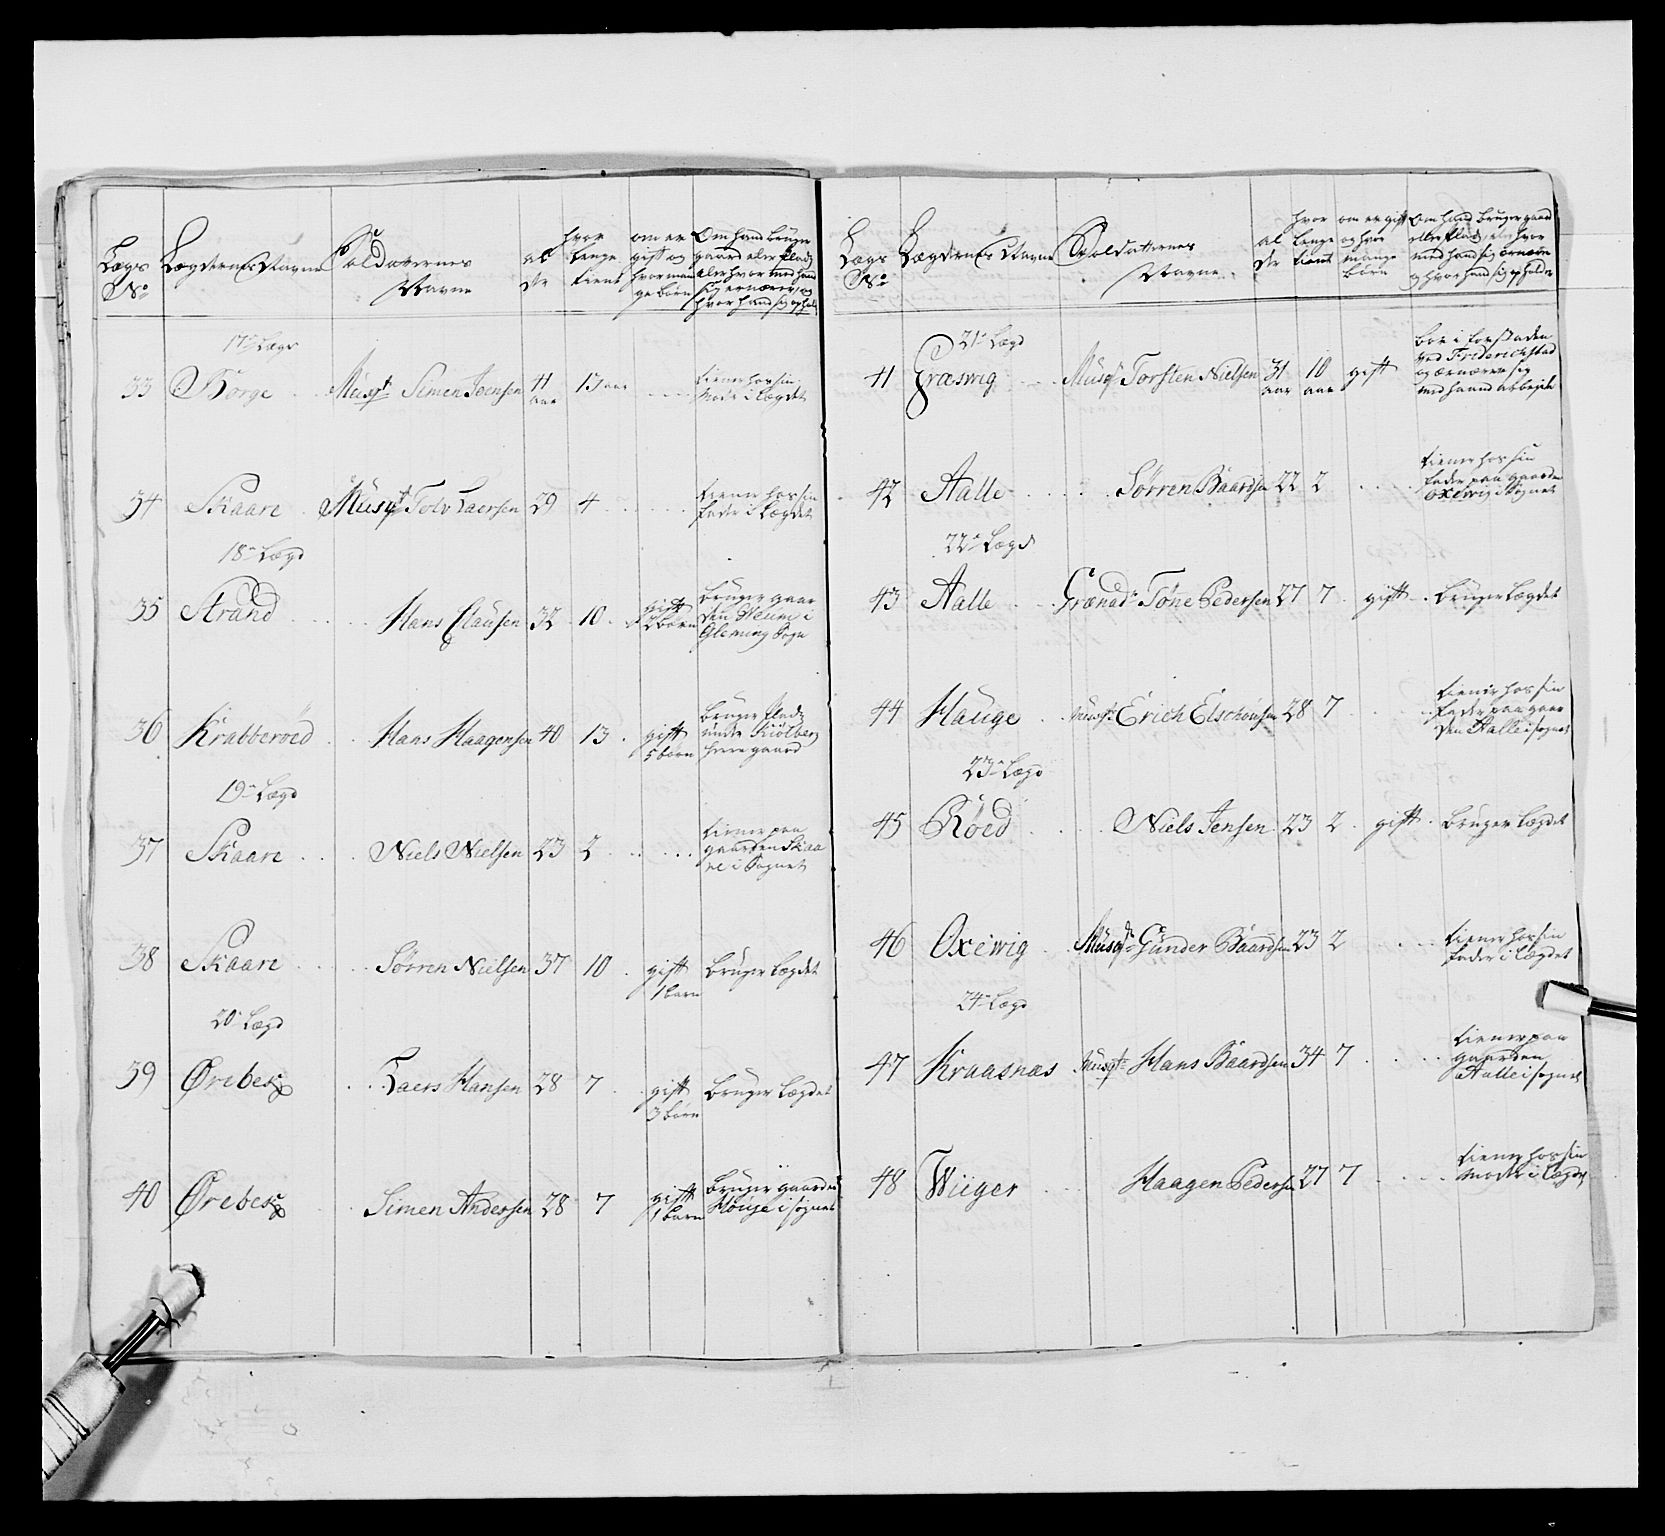 Lægs No
Lægdernes Navne
Soldaternes Navne
al der
hvor lenge tient
om er gift og hvor mange børn
Om hand bruger gaard eller plads eller hvor med hand sig ernærer, og hvor hand sig opholder
17de Lægd
33 Borge Musqt Simen Joensen 41 aar 13 aar tiener hos sin Moder i Lægdet
34 Skaare Musqt Tolv Laersen 29 4 tiener hos sin fader i Lægdet
18de Lægd
35 Strand Hans Clausen 32 10 gift 2 børn bruger gaarden Veum i Glemung Sogn
36 Krabberöed Hans Haagensen 40 13 gift 5 børn bruger Plads under Kiølberg herregaard
19de Lægd
37 Skaare Niels Nielsen 23 2 tiener paa gaarden Skaare i Sognet
38 Skaare Sörren Nielsen 37 10 gift 1 barn bruger Lægdet
20de Lægd
39 Ørebek Laers Hansen 28 7 gift 3 børn bruger Lægdet
40 Ørebek Simen Andersen 28 7 gift 1 barn bruger gaarden Houge i sognet
Lægs No
Lægdernes Navne
Soldatternes Navne
al der
hvor lenge tient
om er gift og hvor mange børn
Om hand bruger gaard eller Plads, eller hvor med hand sig ernærer og hvor hand sig opholder
21de Lægd
41 Græswig Musqt Torsten Nielsen 31 aar 10 aar gift boer i forstaden ved Friderichstad og ernærer sig med haand arbejde
42 Aalle Sörren Baardsen 22 2 tiener hos sin fader paa gaarden Oxewig i Sognet
22de Lægd
43 Aalle Grenad. Töne Pedersen 27 7 gift bruger Lægdet
44 Hauge Musqt Erich Elschousen 28 7 tiener hos sin fader paa gaarden Aalle i sognet
23de Lægd
45 Röed Niels Jensen 23 2 gift bruger Lægdet
46 Oxewig Musqt Gunder Baardsen 23 2 tiener hos sin fader i Lægdet
24de Lægd
47 Kraasnæs Musqt Hans Baardsen 34 7 tiener paa gaarden Aalle i sognet
48 Wiiger Haagen Pedersen 27 7 tiener hos sin moder i Lægdet